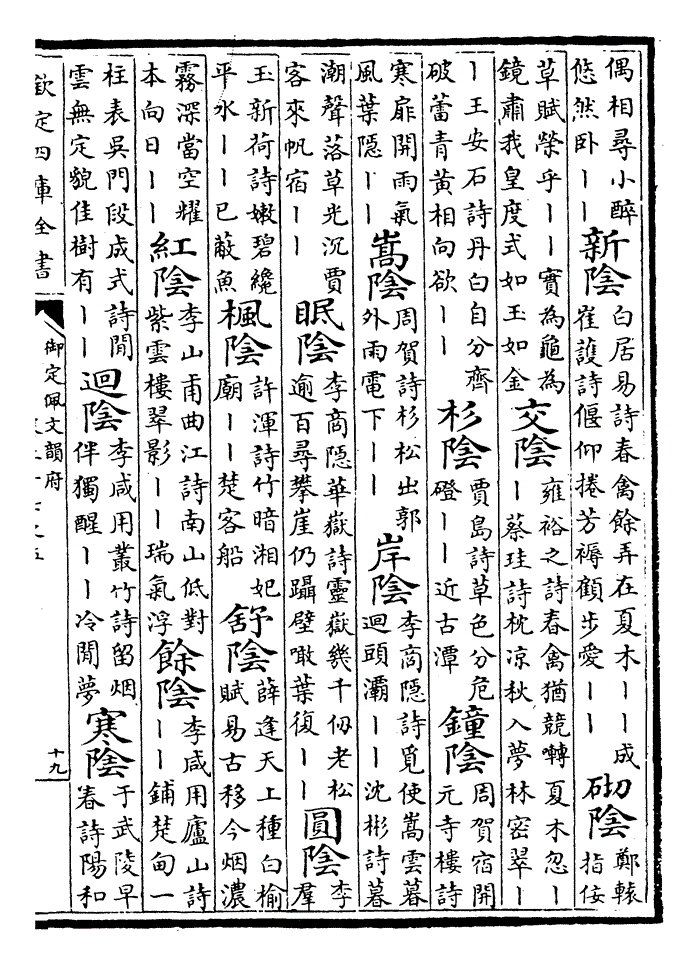 偶相尋小醉悠然卧｜｜新陰白居易詩春禽餘弄在夏木｜｜成崔護詩偃仰捲芳褥顧步愛｜｜砌陰鄭轅指佞
草賦榮乎｜｜實為龜為鏡肅我皇度式如玉如金交陰雍裕之詩春禽猶競囀夏木忽｜｜蔡珪詩枕凉秋入夢林密翠｜
｜王安石詩丹白自分齊破蕾青黃相向欲｜｜杉陰賈島詩草色分危磴｜｜近古潭鐘陰周賀宿開元寺樓詩
寒扉開雨氣風葉隠｜｜嵩陰周賀詩杉松出郭外雨電下｜｜岸陰李商隱詩覓使嵩雲暮迴頭灞｜｜沈彬詩暮
潮聲落草光沉賈客來帆宿｜｜眠陰李商隱華嶽詩靈嶽幾千仞老松逾百尋攀崖仍躡壁噉葉復｜｜圓陰李羣
玉新荷詩嫩碧纔平水｜｜已蔽魚楓陰許渾詩竹暗湘妃廟｜｜楚客船舒陰薛逢天上種白榆賦易古移今烟濃
霧深當空耀本向日｜｜紅陰李山甫曲江詩南山低對紫雲樓翠影｜｜瑞氣浮餘陰李咸用廬山詩｜｜鋪楚甸一
柱表吳門段成式詩閒雲無定貌佳樹有｜｜迴陰李咸用叢竹詩留烟伴獨醒｜｜冷閒夢寒陰于武陵早春詩陽和
欽定四庫全書
御定佩文韻府
十九